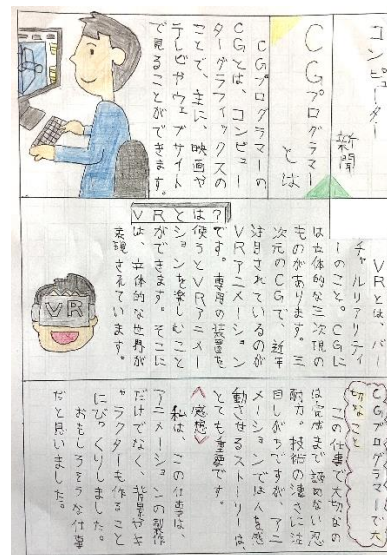 コンピューター
新聞
CGプログラマー
とは
CGプログラマーの
CGとは、コンピュー
ターグラフィックスの
ことで、主に、映画や
テレビやウェブサイト
で見ることができます。
VRとは、バー
チャルリアリティ
ーのこと。CGに
は立体的な三次現の
ものがあります。三
次元のCGで、近年
注目されているのが
VRアニメーション
です。専用の装置を
は使うとVRアニメー
ションを楽しむこと
ができます。そこに
は、立体的な世界が
表現されています。
VRとは?
VR
CGプログラマーで大
切なこと
この仕事で大切なの
は完成まで諦めない忍
耐力。技術の凄さに注
目しがちですが、アニ
メーションでは人を感
動させるストーリーは、
とても重要です。
〈感想〉
私は、この仕事は、
アニメーションの製作
だけでなく、背景やキ
ャラクターも作ること
にびっくりしました。
おもしろそうな仕事
だと思いました。